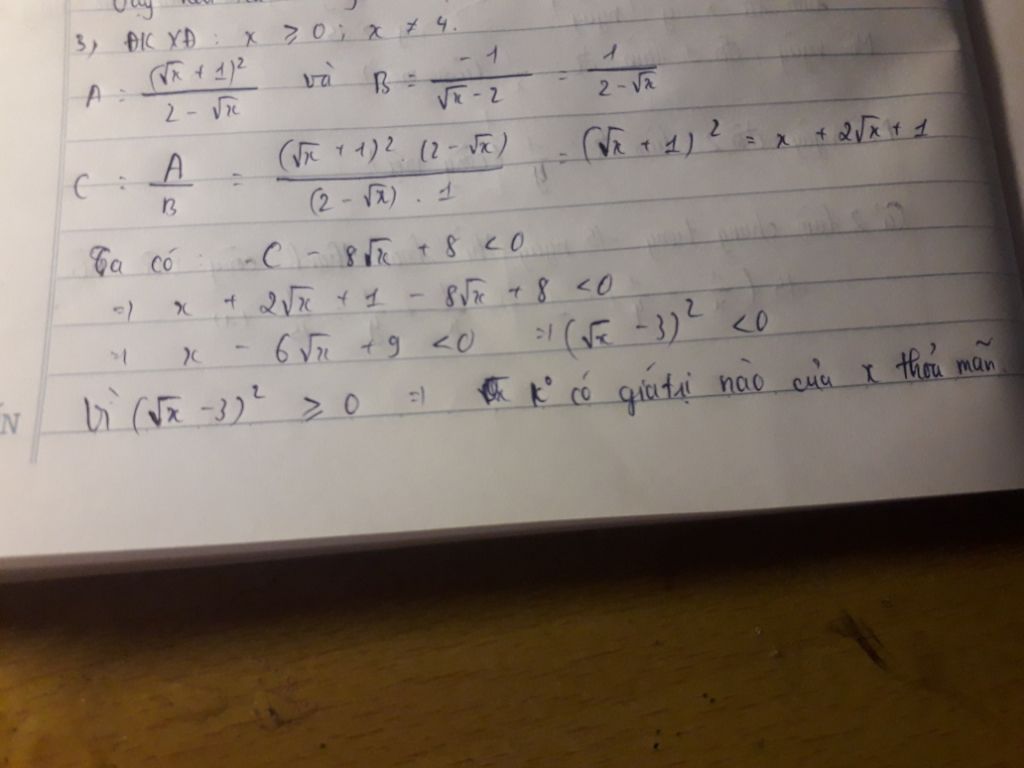 3, ĐKXĐ: x ≥ 0; x ≠ 4.
A = (√x + 1)² / (2 - √x) và B = -1 / (√x - 2) = 1 / (2 - √x)
C = A / B = (√x + 1)² (2 - √x) / (2 - √x) . 1 = (√x + 1)² = x + 2√x + 1
Ta có: C - 8√x + 8 < 0
=> x + 2√x + 1 - 8√x + 8 < 0
=> x - 6√x + 9 < 0 => (√x - 3)² < 0
Vì (√x - 3)² ≥ 0 => K° có giá trị nào của x thỏa mãn
N